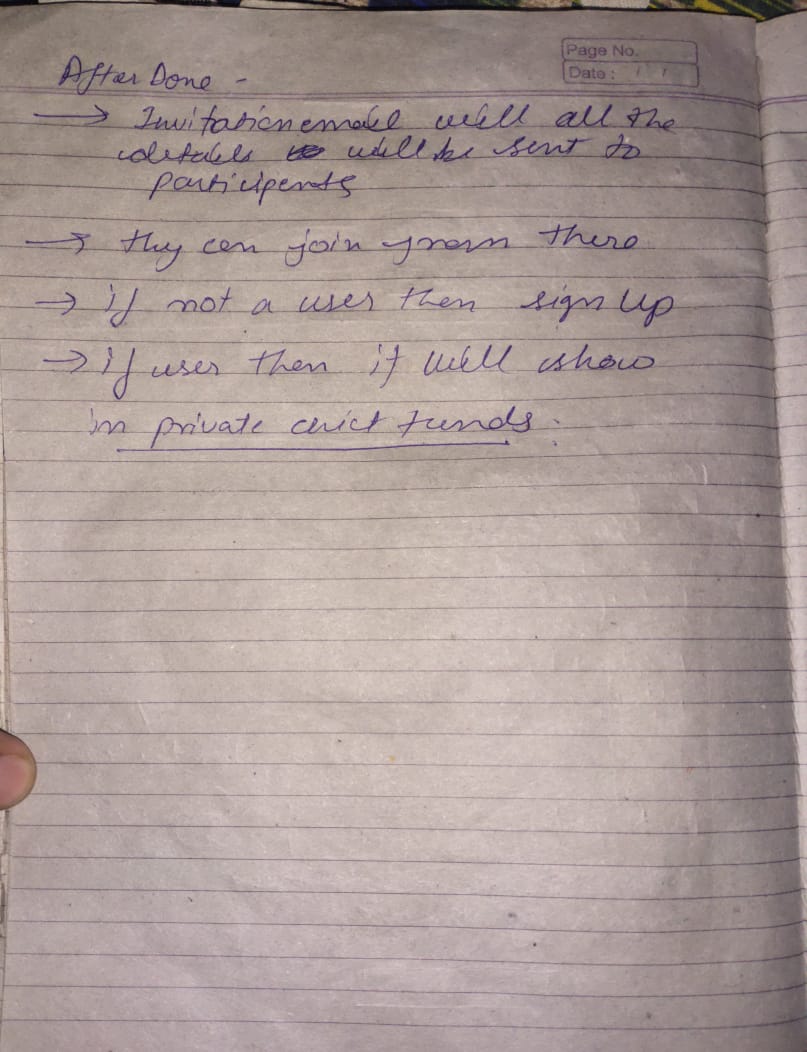 Page No.
Date : / /
After Done -
→ Invitation email will all the
details will be sent to
participents
→ they can join from there
→ if not a user then sign Up
→ if user then it will show
in private chit funds.